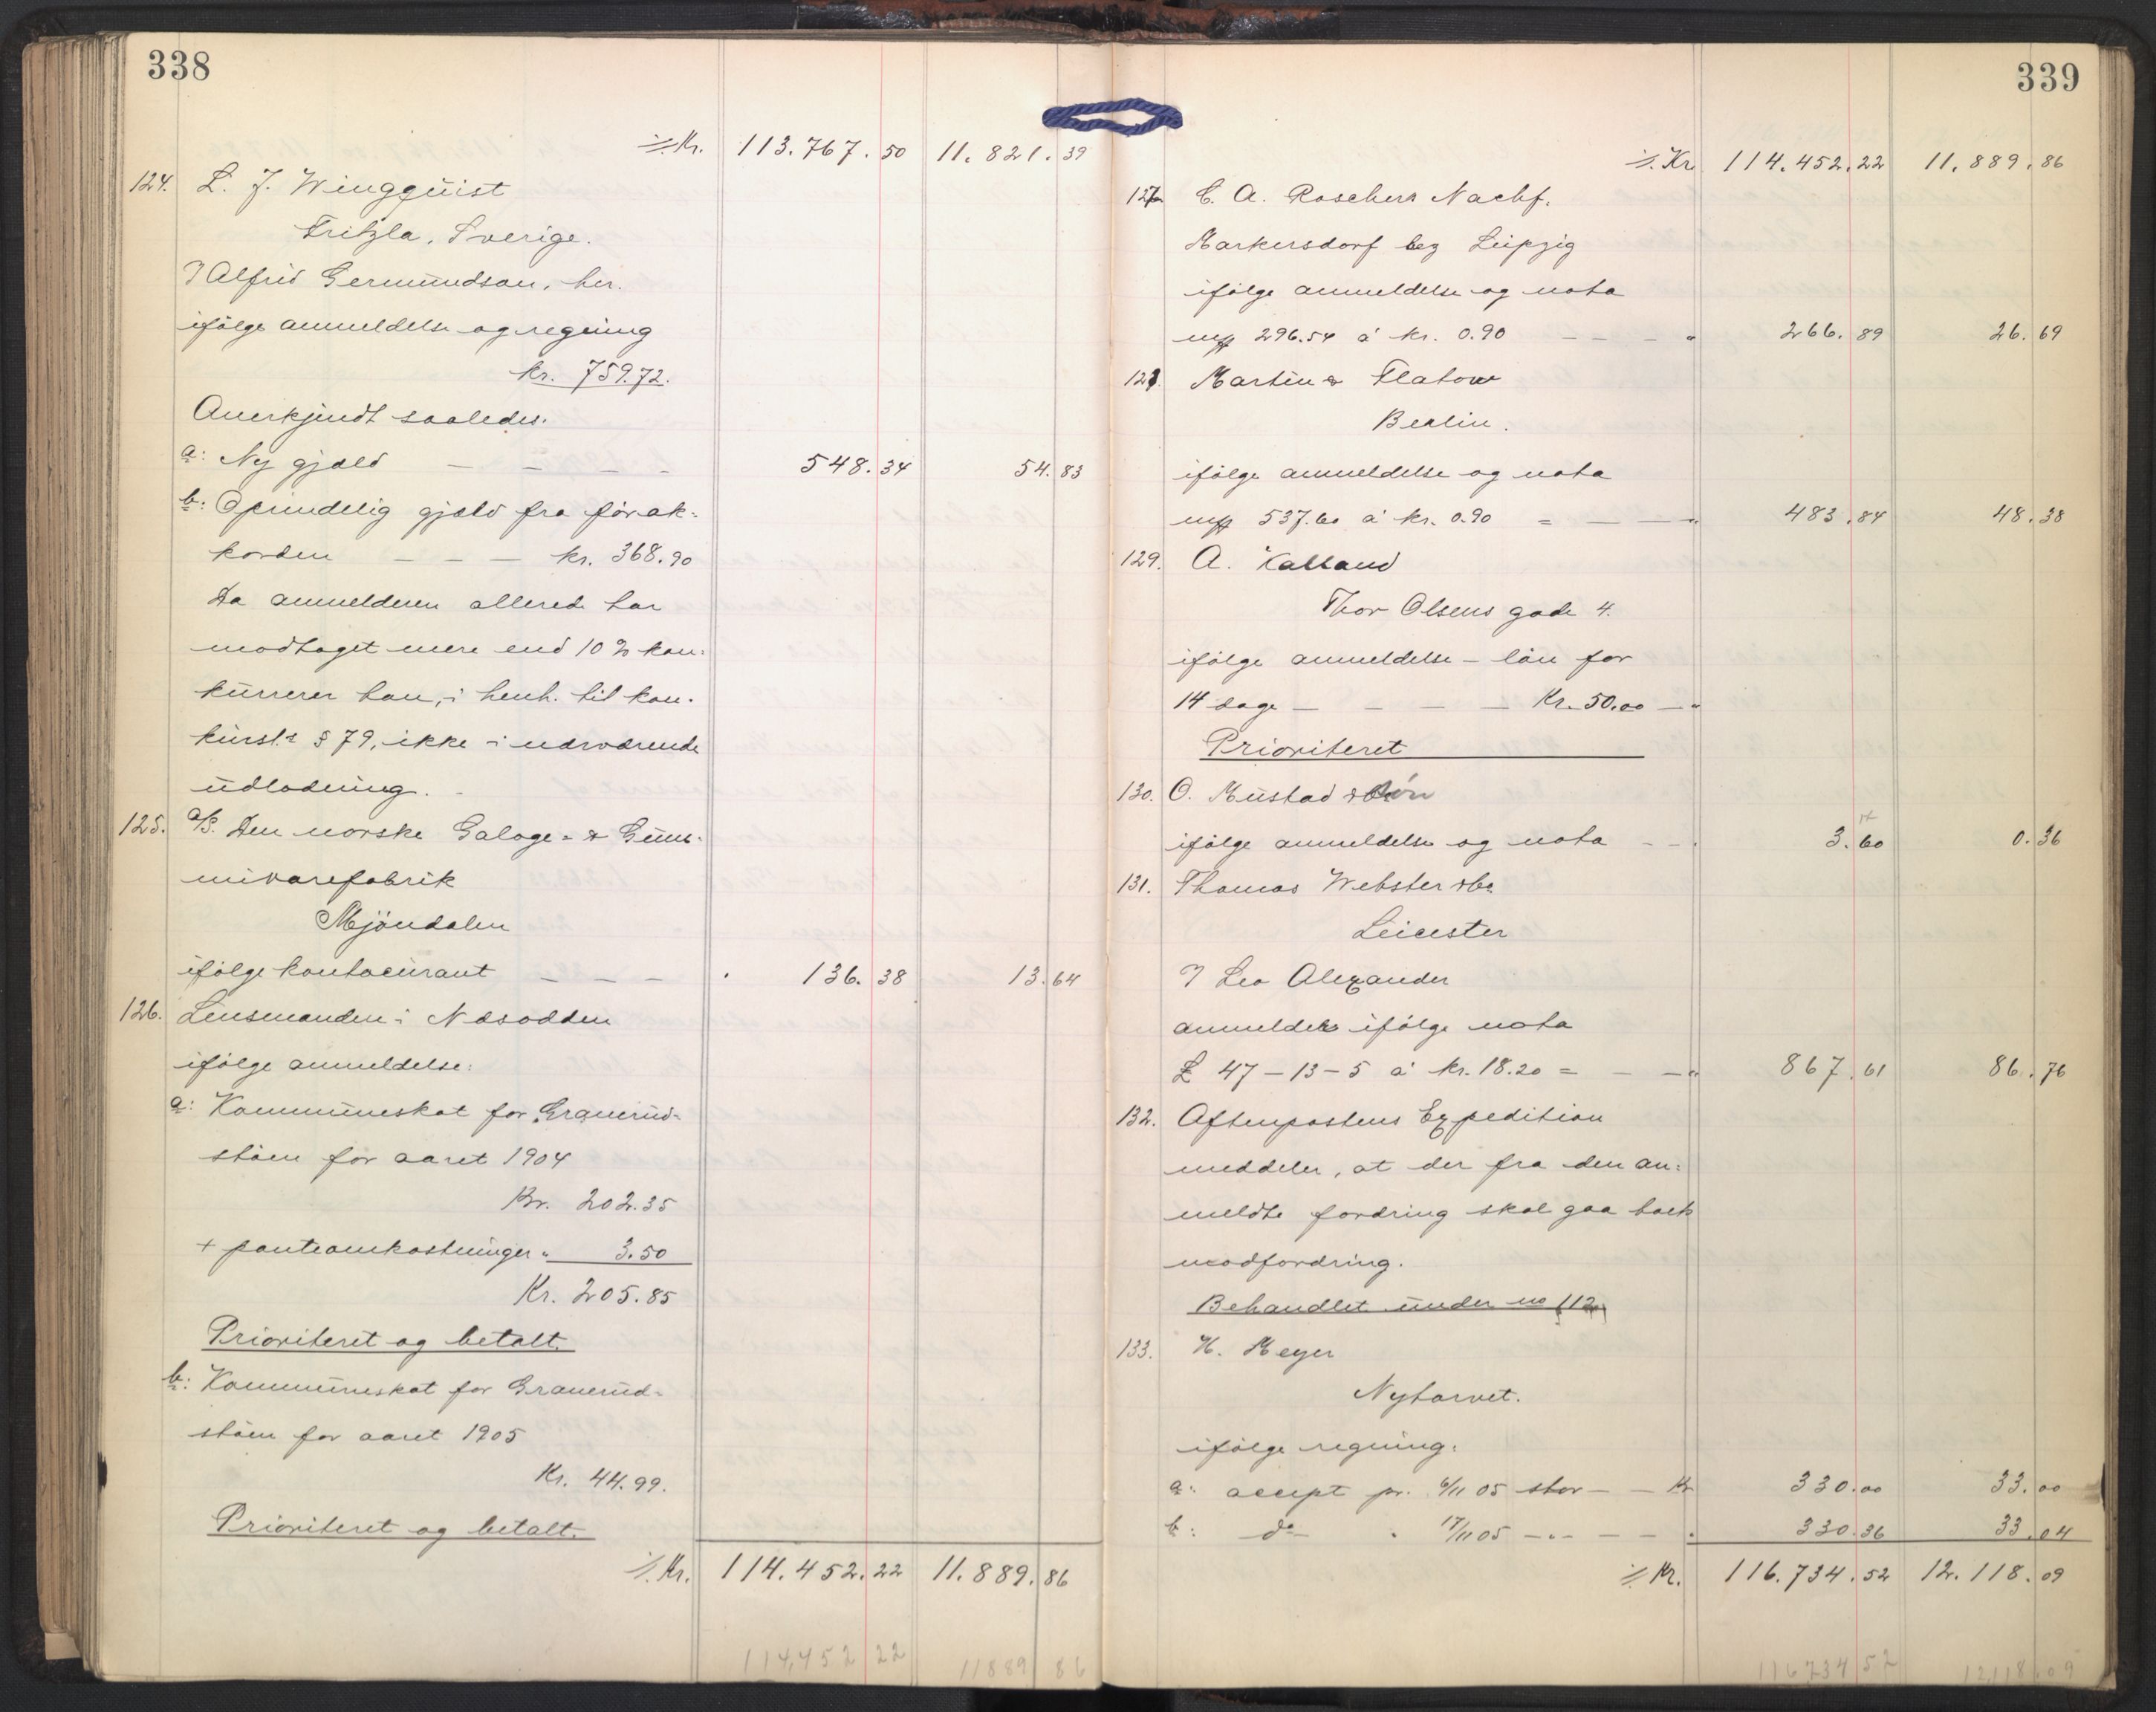 338
÷ Kr. 113.767.50 11.821.39
124. L. J. Wingquist
Fritzla, Sverige.
Alfrid Germundson, her.
ifölge anmeldelse og regning
kr. 759.72.
Anerkjendt saaledes.
a: Ny gjæld — — — — 548.34 54.83
b: Oprindelig gjæld fra för ak-
korden — — — kr. 368.90
Da anmelderen allerede har
modtaget mere end 10 % kon-
kurrerer han, i henh. til kon-
kursl.s § 79, ikke i nærværende
udlodning.
125. A/S. Den norske Galoge- & Gum-
mivarefabrik
Mjöndalen
ifölge kontocurant — — — 136.38 13.64
126. Lensmanden i Næsodden
ifölge anmeldelse:
a: Kommuneskat for Granerud-
støen for aaret 1904
Kr. 202.35
+ panteomkostninger " 3.50
Kr. 205.85
Prioriteret og betalt.
b: Kommuneskat for Granerud-
støen for aaret 1905
Kr. 44.99.
Prioriteret og betalt.
÷ Kr. 114.452.22 11.889.86
114,452 22 11889 86
339
÷ Kr. 114.452.22 11.889.86
127. C. A. Roschers Nachf.
Markersdorf bez Leipzig
ifölge anmeldelse og nota
296.54 à kr. 0.90 — — — " 266.89 26.69
128. Martin & Flatow
Berlin.
ifölge anmeldelse og nota
537.60 à kr. 0.90 = — — " 483.84 48.38
129. A. Kalland
Thor Olsens gade 4.
ifölge anmeldelse – lön for
14 dage — — — — Kr. 50.00 — "
Prioriteret
130. O. Mustad & Sön
ifölge anmeldelse og nota — — 3.60 0.36
131. Thomas Webster & Co.
Leicester
Leo Alexander
anmelder ifölge nota
£ 47 – 13 – 5 à kr. 18.20 = — — " 867.61 86.76
132. Aftenpostens Expedition
meddeler, at der fra den an-
meldte fordring skal gaa
modfordring.
Behandlet under no 112
133. H. Meyer
Nytorvet.
ifölge regning:
a: accept pr. 6/11 05 stor — — Kr 330.00 33.00
b: do " 17/11 05 — " — — — " 330.36 33.04
÷ Kr. 116.734.52 12.118.09
116734 52 12,118.09